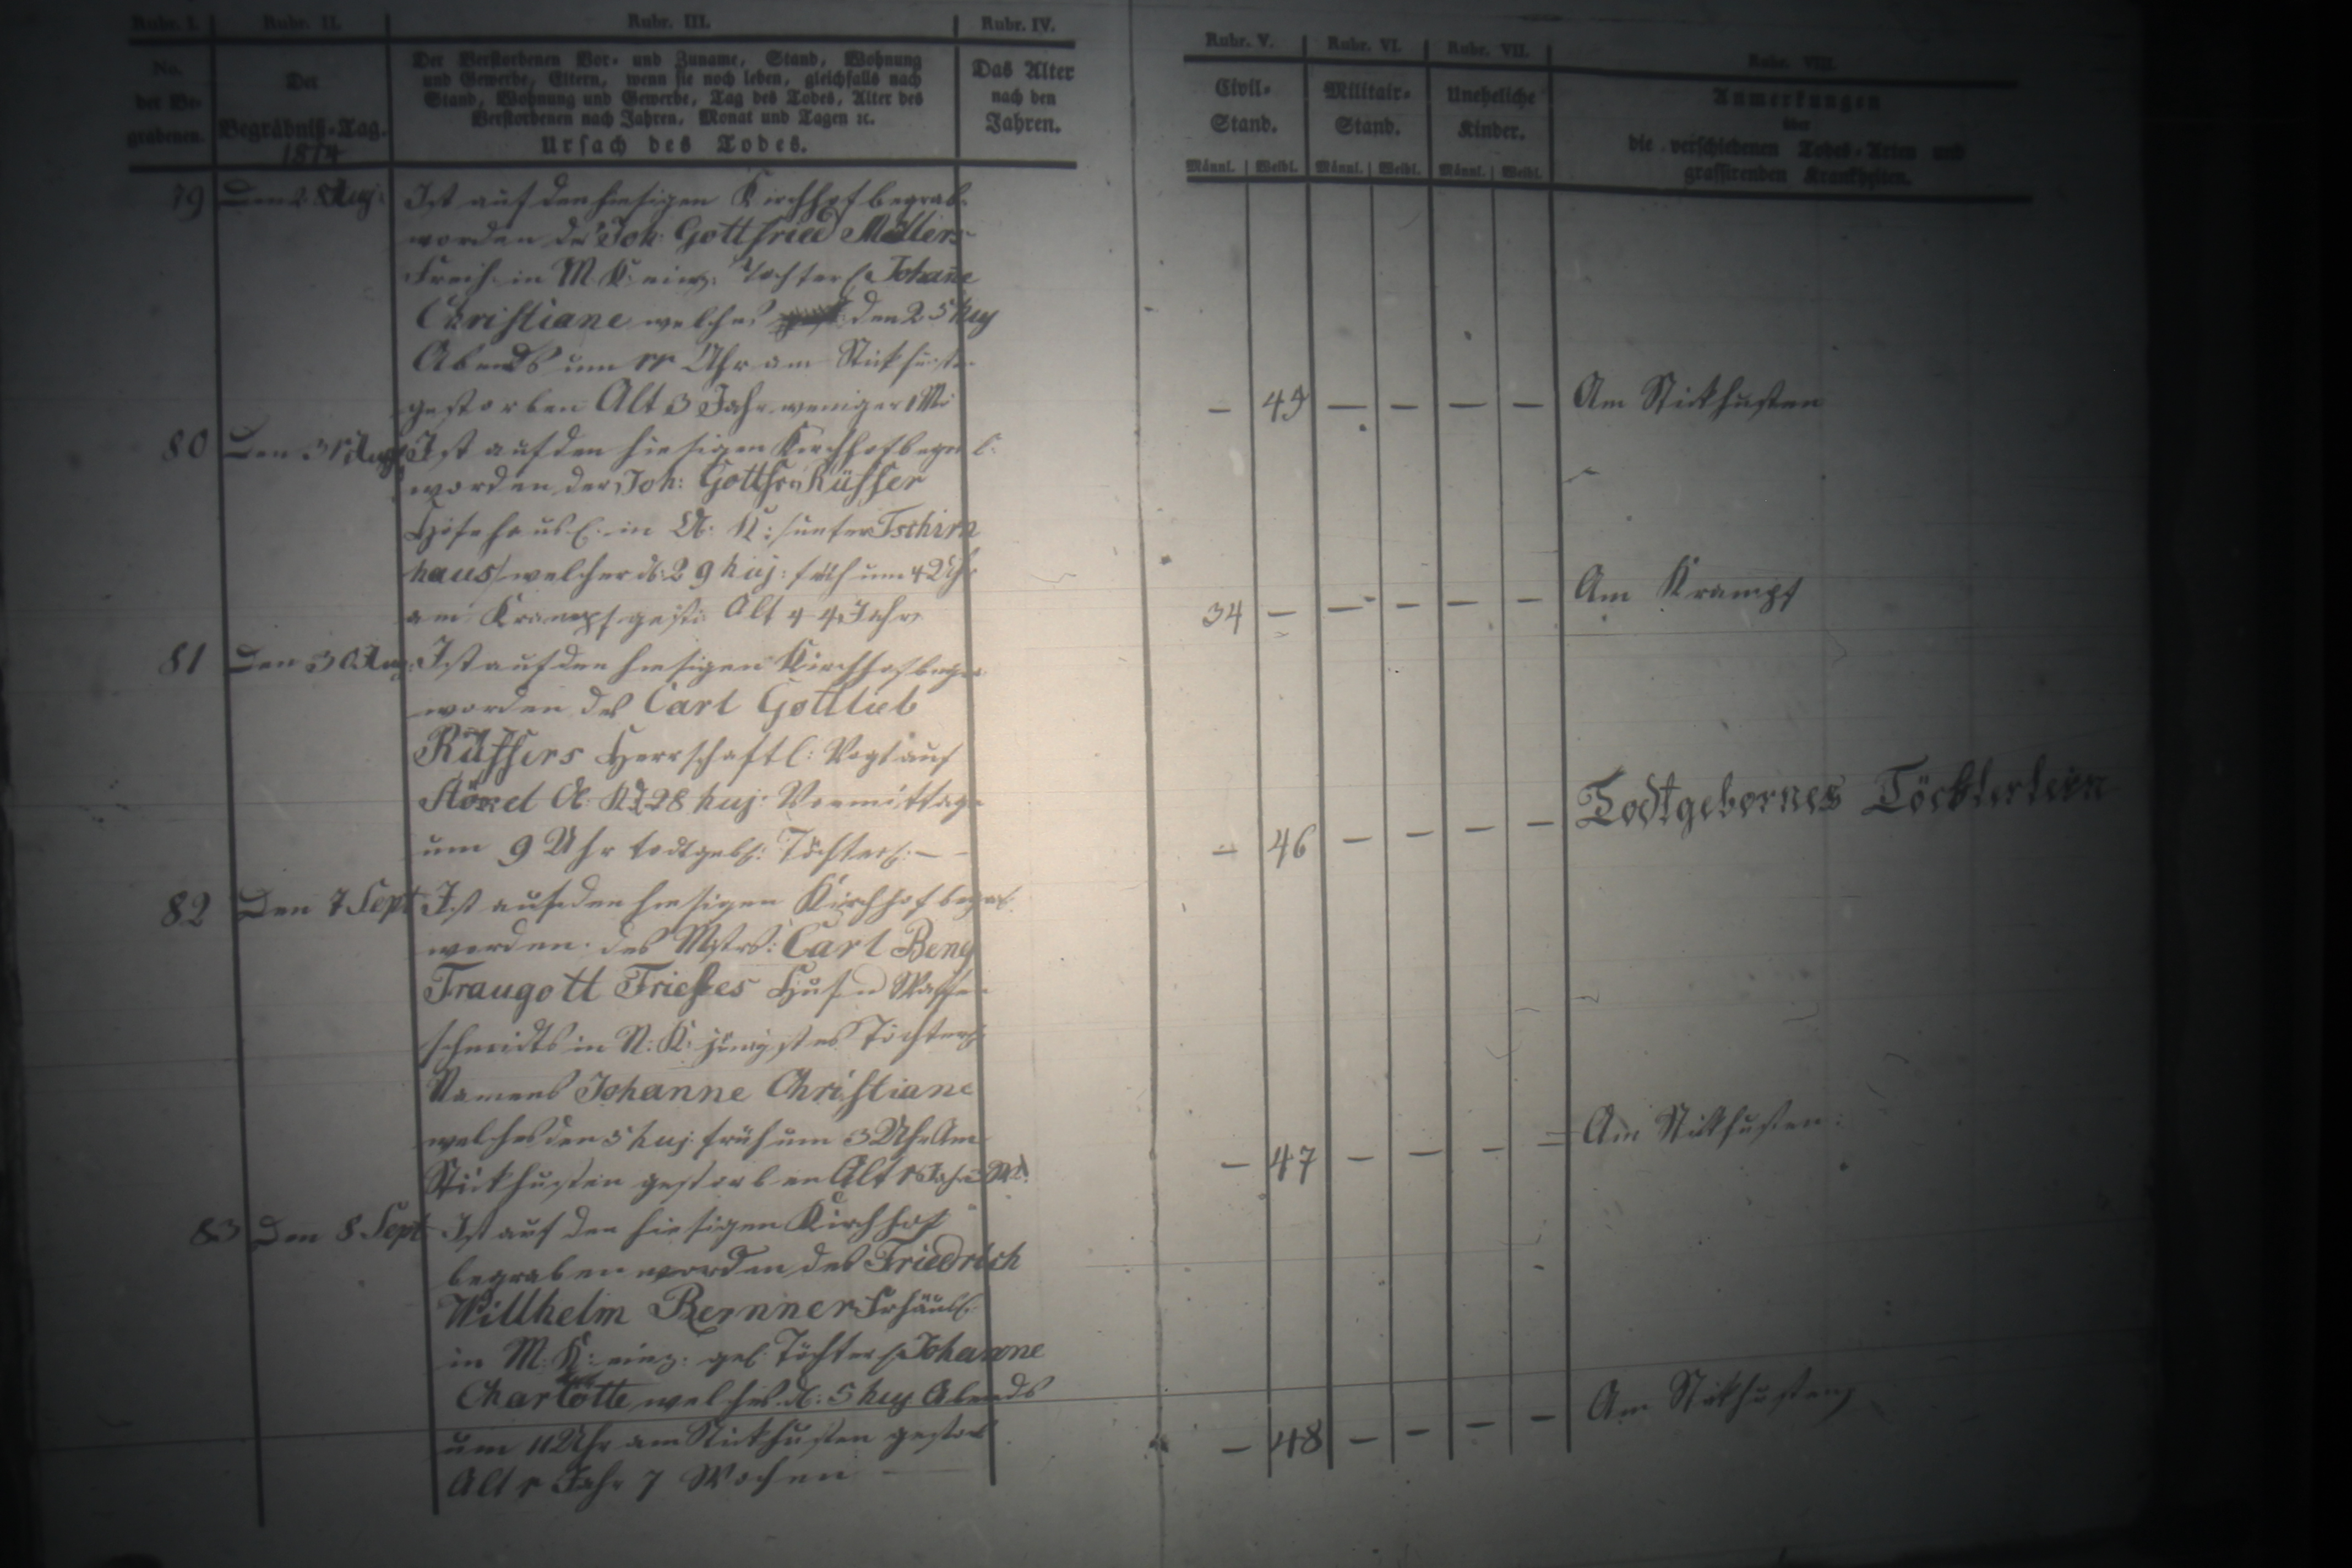 Rubr. I. Rubr. II. Rubr. III. Rubr. IV.
No. der Begrabenen.
Der Begräbniß-Tag.
1814
Der Verstorbenen Vor- und Zuname, Stand, Wohnung
und Gewerbe, Eltern, wenn sie noch leben, gleichfalls nach
Stand, Wohnung und Gewerbe, Tag des Todes, Alter des
Verstorbenen nach Jahren, Monat und Tagen ꝛc.
Ursach des Todes.
Das Alter
nach den
Jahren.
79 Den 28 Aug: Ist auf den hiesigen Kirchhof begrab:
worden des Joh: Gottfried Müllers
in M. K: einz: Töchterl: Johane
Christiane welches den 25 huj
Abends um 11 Uhr am Stickhusten
gestorben Alt 3 Jahr weniger 1 Mo
80 Den 31 Aug Ist auf den hiesigen Kirchhof begrab:
worden der Joh: Gottfr: Rüffer
in A: K: /unter Tschirn
haus/ welcher d: 29 huj: früh um 4 Uhr
am Krampf gest: Alt 44 Jahr
81 Den 30 Aug: Ist auf den hiesigen Kirchhof begra
worden des Carl Gottlieb
Rüffers Herrschaftl: Vogt auf
Stöckel A: K d 28 huj: Vormittags
um 9 Uhr todtgeb: Töchterl: —
82 Den 7 Sept Ist auf den hiesigen Kirchhof begrab
worden des Mstrs: Carl Benj
Traugott Frieses Huf u Waffen
schmidts in N: K: jüngstes Töchterl:
Namens Johanne Christiane
welches den 5 huj: früh um 3 Uhr Am
Stickhusten gestorben Alt 1 Jahr 3 Mo
83 Den 8 Sept Ist auf den hiesigen Kirchhof
begraben worden des Friedrich
Willhelm Bernner Frhäusl:
in M: K: einz: gel: Töchterl: Johanne
Charlotte welches d: 5 huj Abends
um 11 Uhr am Stickhusten gestor
Alt 1 Jahr 7 Wochen —
Rubr. V. Rubr. VI. Rubr. VII. Rubr. VIII.
Civil-
Stand.
Militair-
Stand.
Uneheliche
Kinder.
Anmerkungen
über
die verschiedenen Todes-Arten und
grassirenden Krankheiten.
Männl. Weibl. Männl. Weibl. Männl. Weibl.
— 45 — — — — Am Stickhusten
34 — — — — — Am Krampf
— 46 — — — — Todtgebornes Töchterlein
— 47 — — — — Am Stickhusten:
— 48 — — — — Am Stickhusten